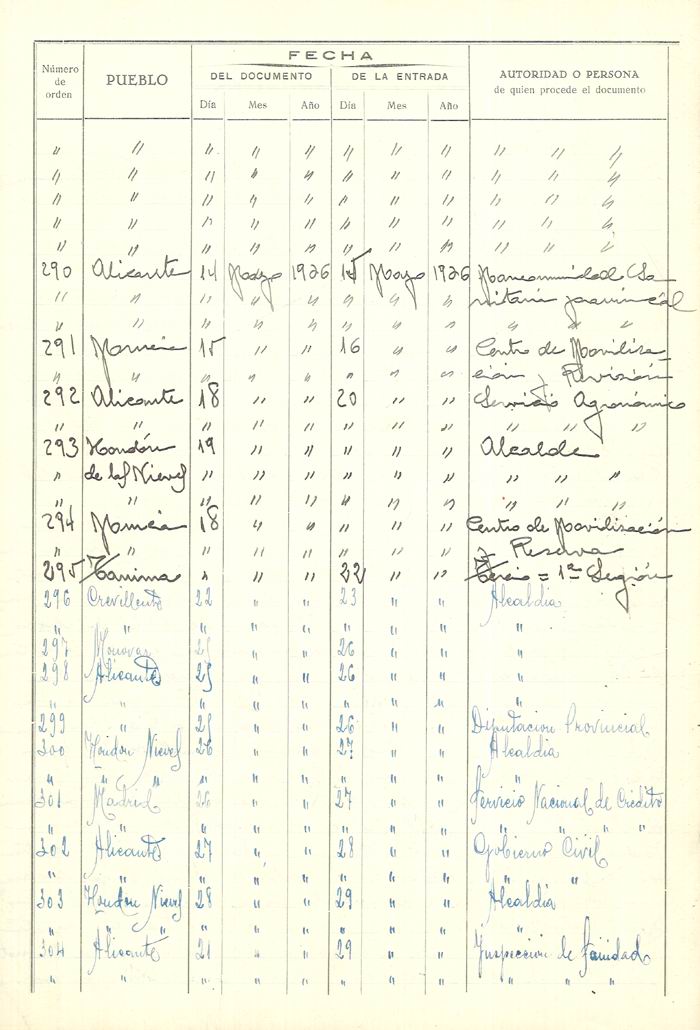 FECHA
Número de orden PUEBLO DEL DOCUMENTO DE LA ENTRADA AUTORIDAD O PERSONA de quien procede el documento
Día Mes Año Día Mes Año
" " " " " " " " " " "
" " " " " " " " " " "
" " " " " " " " " " "
" " " " " " " " " " "
" " " " " " " " " " "
290 Alicante 14 Mayo 1926 15 Mayo 1926 Mancomunidad Sa
" " " " " " " " nitaria provincial
" " " " " " " " " " "
291 Murcia 15 " " 16 " " Centro de Moviliza
" " " " " " " " ción y Revisión
292 Alicante 18 " " 20 " " Servicio Agronómico
" " " " " " " " " " "
293 Hondón 19 " " " " " Alcalde
" de las Nieves " " " " " " " " "
" " " " " " " " " " "
294 Murcia 18 " " " " " Centro de Movilización
" " " " " " " " y Reserva
295 " " " 22 " " Tercio = 1ª Legión
296 Crevillente 22 " " 23 " " Alcaldia
" " " " " " " " "
297 Monovar 25 " " 26 " " "
298 Alicante 25 " " 26 " " "
" " " " " " " "
299 " 25 " " 26 " " Diputacion Provincial
300 Hondon Nieves 26 " " 27 " " Alcaldia
" " " " " " " " "
301 Madrid 26 " " 27 " " Servicio Nacional de Credito
" " " " " " " " " " "
302 Alicante 27 " " 28 " " Gobierno Civil
" " " " " " " " " "
303 Hondon Nieves 28 " " 29 " " Alcaldia
" " " " " " " " "
304 Alicante 21 " " 29 " " Inspeccion de Sanidad
" " " " " " " " " " "